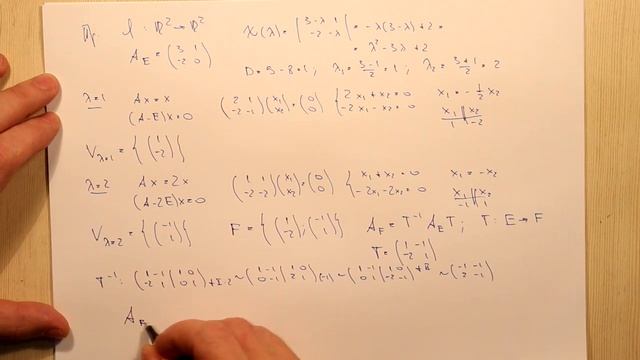 Пр. l: ℝ² → ℝ² χ(λ) = |3-λ 1; -2 -λ| = -λ(3-λ)+2 =
A_E = (3 1; -2 0) = λ² - 3λ + 2
D = 9 - 8 = 1; λ₁ = (3-1)/2 = 1; λ₂ = (3+1)/2 = 2
λ=1 Ax = x (2 1; -2 -1)(x₁; x₂) = (0; 0) {2x₁ + x₂ = 0; -2x₁ - x₂ = 0 x₁ = -½ x₂
(A-E)x = 0 x₁ | x₂
1 | -2
V_{λ=1} = {(1; -2)}
λ=2 Ax = 2x (1 1; -2 -2)(x₁; x₂) = (0; 0) {x₁ + x₂ = 0; -2x₁ - 2x₂ = 0 x₁ = -x₂
(A-2E)x = 0 x₁ | x₂
-1 | 1
V_{λ=2} = {(-1; 1)} F = {(1; -2); (-1; 1)} A_F = T⁻¹ A_E T; T: E → F
T = (1 -1; -2 1)
T⁻¹: (1 -1 | 1 0; -2 1 | 0 1) +I·2 ~ (1 -1 | 1 0; 0 -1 | 2 1)·(-1) ~ (1 -1 | 1 0; 0 1 | -2 -1) +II ~ (-1 -1; -2 -1)
A_F